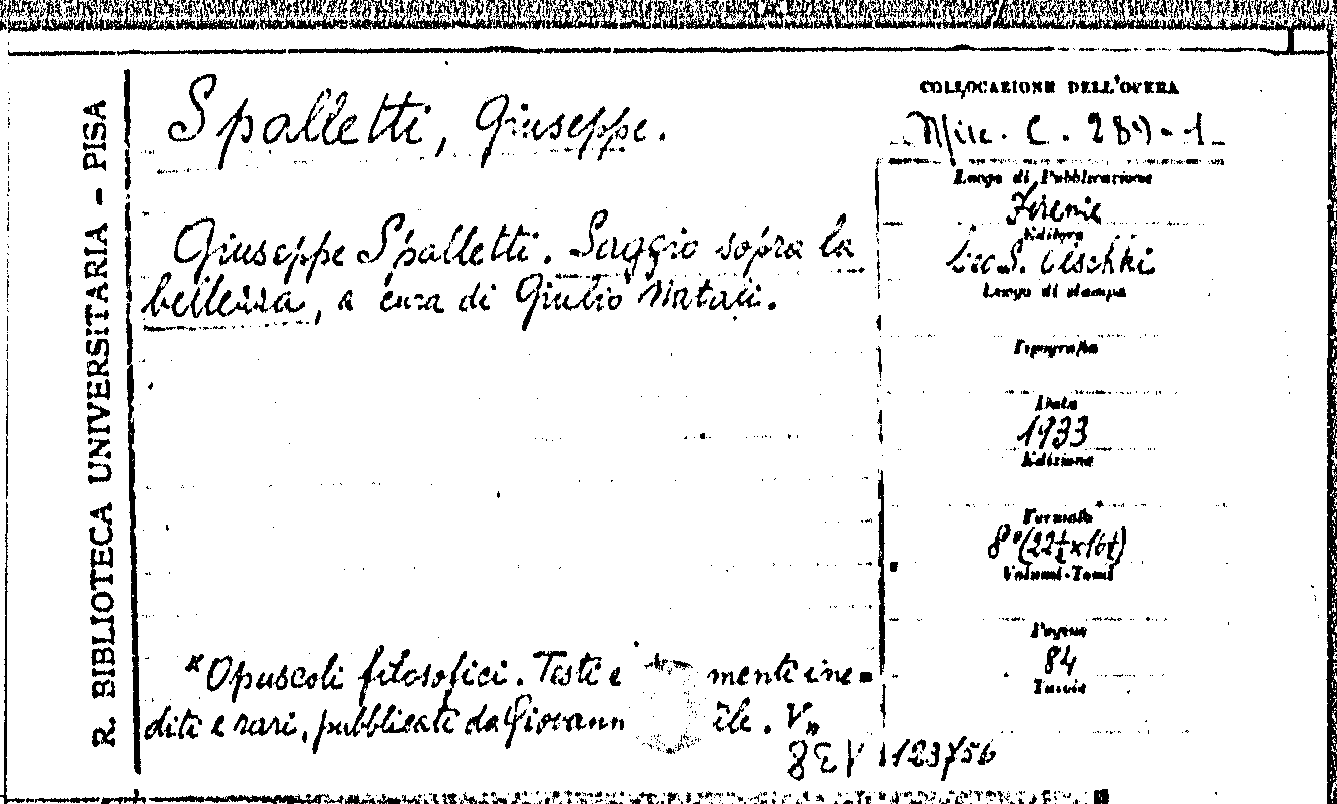 R. BIBLIOTECA UNIVERSITARIA - PISA
Spalletti, Giuseppe.
Giuseppe Spalletti. Saggio sopra la
bellezza, a cura di Giulio Natali.
*Opuscoli filosofici. Testi e menti ine=
diti e rari, pubblicati da Giovann ile. V.
COLLOCAZIONE DELL'OPERA
Misc. C. 289-1
Luogo di Pubblicazione
Firenze
Editore
Leo S. Olschki
Luogo di stampa
Tipografia
Data
1933
Edizione
Formato
8°(22½x16½)
Volumi-Tomi
Pagine
84
Tavole
123756